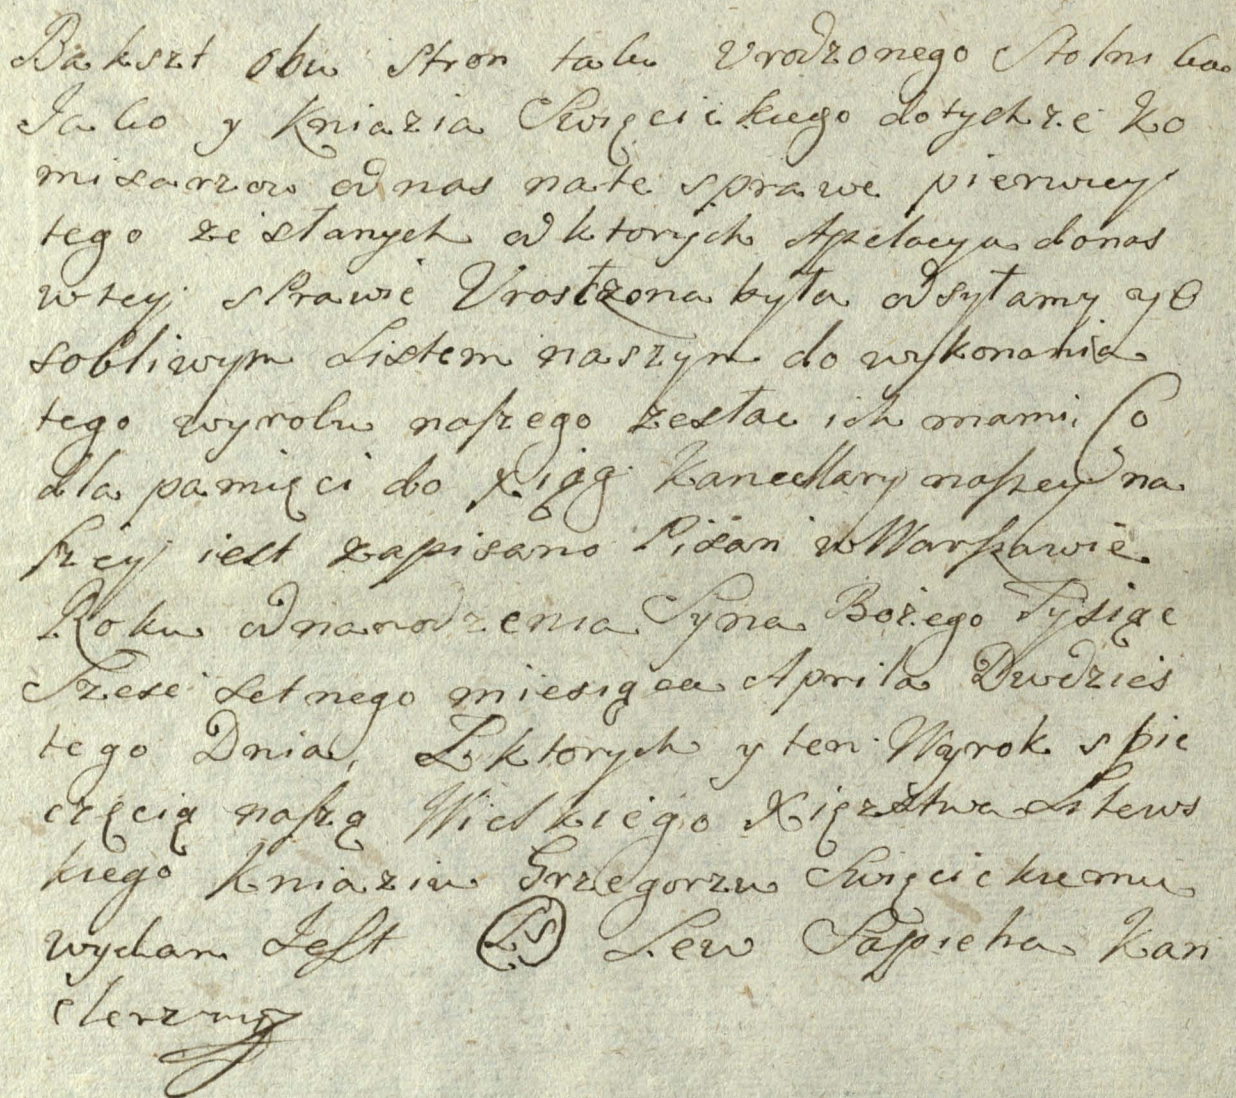 Bakszt obu stron taku Urodzonego Stolnika
Jako y Kniazia Swięcickiego dotychże Ko
misarzow od nas na te sprawe pierwey
tego zesłanych od ktorych Apelacya do nas
w tey sprawie Urosczona była odsyłamy y o
sobliwym Listem naszym do wykonania
tego wyroku naszego zesłac ich mami, Co
dla pamięci do Xiąg Kancellary naszey na
szey iest zapisano Pisan w Warszawie
Roku od narodzenia Syna Bożego Tysiąc
Szesc setnego miesiąca Aprila Dwdzies
tego Dnia, Z ktorych y ten Wyrok s pie
częcią naszą Wielkiego Xięzstwa Litews
kiego Kniaziu Grzegorzu Swięcickiemu
wydan Jest LS Lew Sapieha Kan
clerz